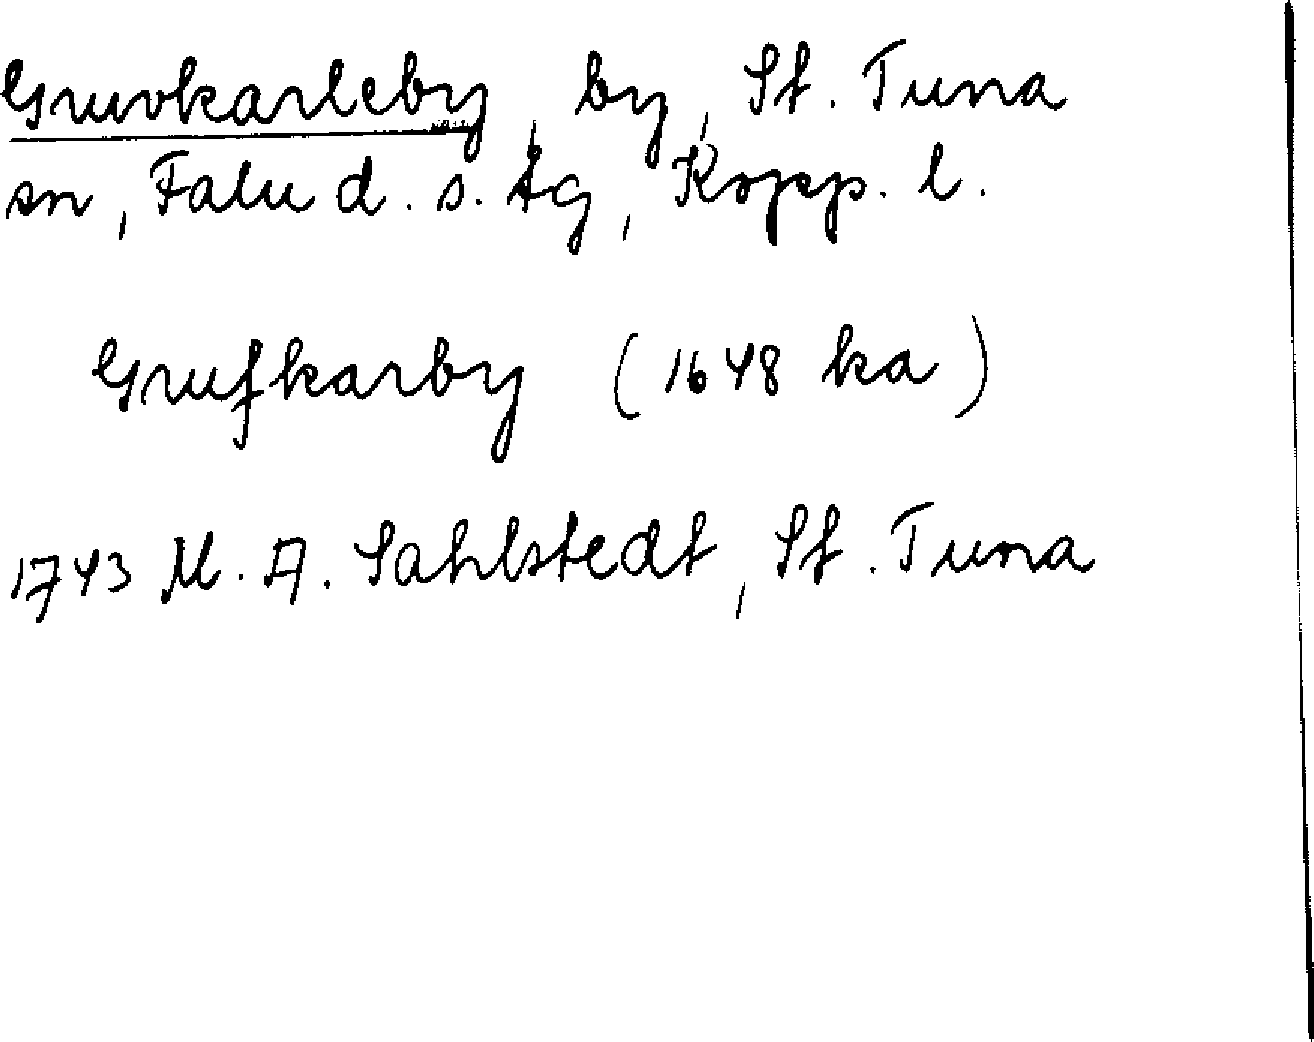 Gruvkarleby, by, St. Tuna
sn, Falu d. s. tg, Kopp. l.
Grufkarby (1648 ka)
1743 M. A. Sahlstedt, St. Tuna